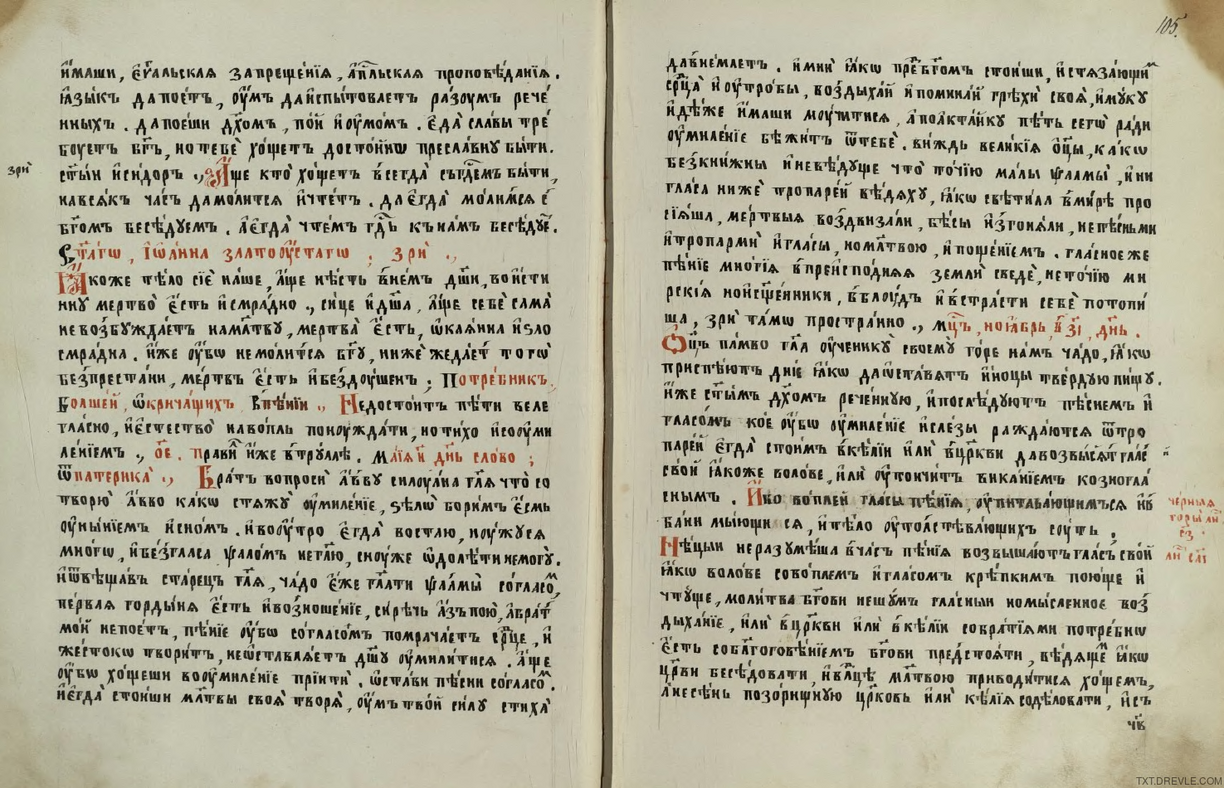 и҆́маши, є҆ѵⷢ҇альская запреще́нїѧ, а҆пⷭ҇льская проповѣ́данїѧ.
ꙗ҆зы́къ да пое́тъ, ᲂу҆́мъ да и҆спы́товаетъ ра́зᲂумъ рече́
нныхъ. да пое́ши дх҃омъ, по́й и҆ ᲂу҆мо́мъ. є҆да̀ сла́вы тре́
бᲂуетъ бг҃ъ, но тебѐ хо́щетъ досто́йнѡ пресла́внꙋ бы́ти.
зри̑
ст҃ы́и и҆си́доръ .,
А҆́ще кто̀ хо́щетъ всегда̀ съ бг҃омъ бы́ти,
на всѧ́къ ча́съ да мо́литсѧ и҆ чте́тъ. да є҆гда̀ мо́лимсѧ с̾
бг҃омъ бесѣ́дꙋемъ. а҆ є҆гда̀ чте́мъ гдⷭ҇ь къ на́мъ бесѣ́дꙋе.
Ст҃а́гѡ, і҆ѡа́нна златоᲂу́стагѡ ; зрѝ .,
Ꙗ҆́коже тѣ́ло сїѐ на́ше, а҆́ще нѣ́сть в̾ не́мъ дш҃и, вои́сти
ннꙋ ме́ртво є҆́сть и҆ смра́дно ., си́це и҆ дш҃а̀, а҆́ще себѐ сама̀
не возбꙋжда́етъ на мл҃твꙋ, мертва̀ є҆́сть, ѡ҆каѧ́нна и҆ ѕло
смра́дна. и҆́же ᲂу҆́бѡ не мо́литсѧ бг҃ꙋ, нижѐ жела́етъ того̀
безпреста́ни, ме́ртвъ є҆́сть и҆ бездоу́шенъ ; Потре́бникъ,
Болше́й, ѡ҆ крича́щихъ в̾ пе́нїи ., Недосто́итъ пѣ́ти веле
гла́сно, и҆ є҆стество̀ на во́пль понꙋжда́ти, но ти́хо и҆ со ᲂуми
ле́нїемъ ., ѻ҃е . пра́ви́ и҆́же в̾ трꙋ́ллѣ . ма́їѧ и҃ дн҃ь сло́во ;
ѿ патерика̀ ., Бра́тъ вопросѝ а҆́ввꙋ силꙋа́на гл҃ѧ что̀ со
творю̀ а҆́вво ка́кѡ стѧжꙋ̀ ᲂу҆миле́нїе, ѕѣлѡ̀ бори́мъ є҆́смь
ᲂу҆ны́нїемъ и҆ сно́мъ. и҆ воᲂу́тро є҆гда̀ востаю̀, нꙋ́жꙋсѧ
мно́гѡ, и҆ без̾ гла́са ѱало́мъ не гл҃ю, сно́у же ѡ҆долѣ́ти не могꙋ̀.
И҆ ѿвѣща́въ ста́рецъ гл҃ѧ, ча́до є҆́же гл҃ати ѱалмы̀ согла́сом
пе́рваѧ горды́нѧ є҆́сть и҆ возноше́нїе, си́рѣчь а҆́зъ пою̀, а҆ бра́т
мо́й не пое́тъ, пѣ́нїе ᲂу҆́бѡ со гла́сомъ помрача́етъ срⷣце, и҆
же́стокѡ твори́тъ, не ѡ҆ставлѧ́етъ дш҃ꙋ ᲂу҆мили́тисѧ. а҆́ще
ᲂу҆́бѡ хо́щеши во ᲂу҆миле́нїе прїитѝ. ѡ҆ста́ви пѣ́сни со гла́сом.
и҆ є҆гда̀ стои́ши мл҃твы своѧ̀ творѧ̀, ᲂу҆́мъ тво́й си́лꙋ стиха̀
105.
да внемле́тъ. и҆ мнѝ ꙗ҆́кѡ пре́д бг҃омъ стои́ши, и҆стѧза́ющимъ
срⷣца и҆ ᲂу҆тро́бы, воздыха́й и҆ помина́й грѣхѝ своѧ̀, и҆ мꙋ́кꙋ
и҆дѣ́же и҆́маши мꙋ́читисѧ, а҆ по ѻ҆ктаи́кꙋ пѣ́ть сего̀ ра́ди
ᲂу҆миле́нїе бѣжи́тъ ѿ тебѐ. ви́ждь вели́кїѧ ѻ҆ц҃ы, ка́кѡ
безкни́жны и҆ невѣ́дꙋще что̀ то́чїю ма́лы ѱалмы̀, и҆ ни
гла́са нижѐ тропаре́й вѣ́дѧхꙋ, ꙗ҆́кѡ свѣти́ла в̾ ми́рѣ про
сїѧ́ша, ме́ртвыѧ воздвиза́ли, бѣ́сы и҆згонѧ́ли, не пѣ́сньми
и҆ тропармѝ и҆ гла́сы, но мл҃твою, и҆ поще́нїемъ. гла́сное же
пѣ́нїе мно́гїѧ в̾ преиспо́днѧѧ землѝ сведѐ, не то́чїю ми
рскїѧ но и҆ сщ҃е́нники, в̾ блꙋ́дъ и҆ в̾ стра́сти себѐ потопи́
ша, зрѝ та́мѡ простра́нно ., мцⷭ҇ъ, ноѧ́брь в̾ з҃і, дн҃ь .
Ѻ҆ц҃ъ па́мво гл҃а ᲂу҆ченикꙋ̀ своемꙋ̀ го́ре на́мъ ча́до, ꙗ҆́кѡ
приспѣ́ютъ дні́е ꙗ҆́кѡ да ѡ҆ста́вѧтъ и҆́ноцы тве́рдꙋю пи́щꙋ.
и҆́же ст҃ы́мъ дх҃омъ рече́ннꙋю, и҆ послѣ́дꙋютъ пѣ́снемъ и҆
гласо́мъ коѐ ᲂу҆́бѡ ᲂу҆миле́нїе и҆ сле́зы ражда́ютсѧ ѿ тро
паре́й є҆гда̀ стои́мъ в̾ ке́лїи и҆лѝ в̾ цр҃кви да возвыⷲ҇ѧ́тъ гла́с
сво́й ꙗ҆́коже воло́ве, и҆лѝ
снымъ . И҆́бо во пле́й гла́сы пѣ́нїѧ, ᲂу҆питава́ющимъсѧ и҆
ба́ни мы́ющи сѧ, и҆ тѣ́ло ᲂу҆толстѣва́ющихъ сꙋ́ть.
Нѣ́цыи не разꙋмѣ́ша в̾ ча́съ пѣ́нїѧ возвыша́ютъ гла́съ сво́й
ꙗ҆́кѡ воло́ве со во́племъ и҆ гла́сомъ крѣ́пкимъ пою́ще и҆
чтꙋ́ще, моли́тва бг҃ови не шꙋ́мъ гла́сный но мы́сленное воз̾
дыха́нїе, и҆лѝ в̾ цр҃кви и҆лѝ в̾ ке́лїи со бра́тїѧми потре́бнѡ
є҆́сть со благогове́нїемъ бг҃ови предстоѧ́ти, вѣ́дѧще ꙗ҆́кѡ
цр҃ви бесѣ́довати, и҆ влⷣцѣ мл҃твою приводи́тисѧ хо́щемъ,
а҆ не сѣ́нь позо́рищнꙋю цр҃ковь и҆лѝ ке́лїѧ содѣ́ловати, и҆ съ
чꙋ́в